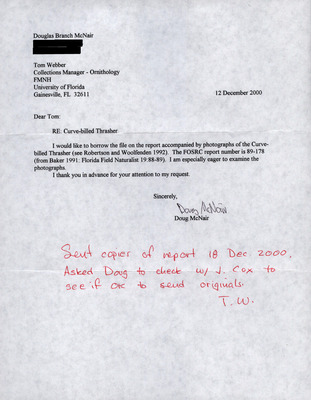 Douglas Branch McNair
Tom Webber
Collections Manager - Ornithology
FMNH
University of Florida
Gainesville, FL 32611
12 December 2000
Dear Tom:
RE: Curve-billed Thrasher
I would like to borrow the file on the report accompanied by photographs of the Curve-
billed Thrasher (see Robertson and Woolfenden 1992). The FOSRC report number is 89-178
(from Baker 1991: Florida Field Naturalist 19:88-89). I am especially eager to examine the
photographs.
I thank you in advance for your attention to my request.
Sincerely,
Doug McNair
Doug McNair
Sent copies of report 18 Dec. 2000,
Asked Doug to check w/ J. Cox to
see if OK to send originals.
T.W.